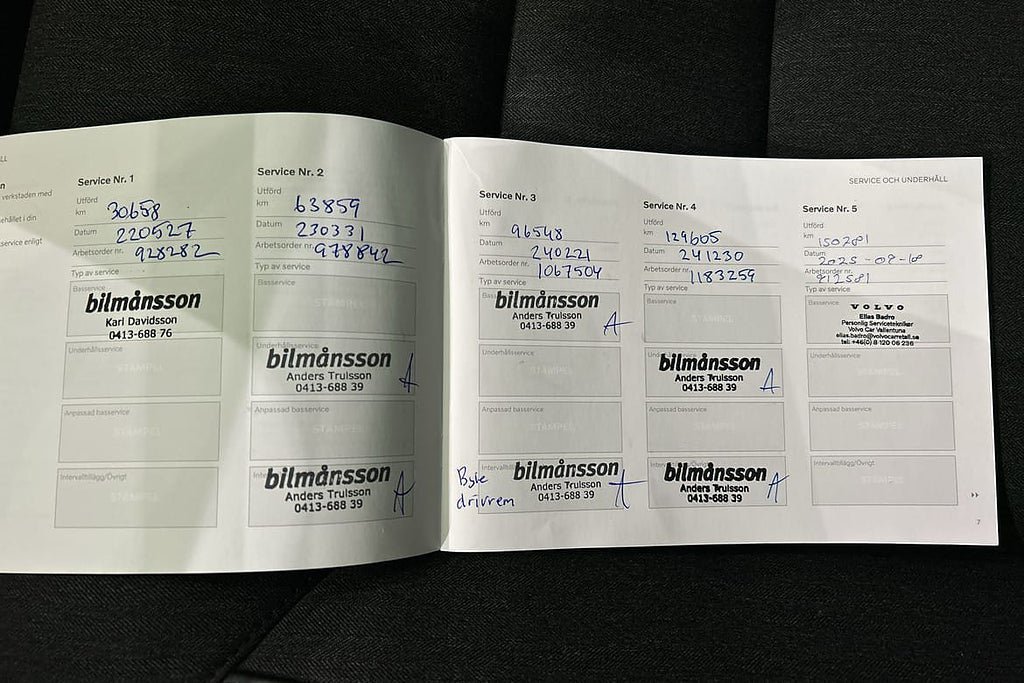 LL
n
verkstaden med
ehållet i din
service enligt
Service Nr. 1
Utförd
km 30658
Datum 220527
Arbetsorder nr. 928282
Typ av service
Basservice
bilmånsson
Karl Davidsson
0413-688 76
Underhållsservice
STÄMPEL
Anpassad basservice
STÄMPEL
Intervalltillägg/Övrigt
STÄMPEL
Service Nr. 2
Utförd
km 63859
Datum 230331
Arbetsorder nr. 978842
Typ av service
Basservice
STÄMPEL
Underhållsservice
bilmånsson
Anders Trulsson
0413-688 39
A
Anpassad basservice
STÄMPEL
bilmånsson
Anders Trulsson
0413-688 39
A
Service Nr. 3
Utförd
km 96548
Datum 240221
Arbetsorder nr. 1067504
Typ av service
bilmånsson
Anders Trulsson
0413-688 39
A
Underhållsservice
STÄMPEL
Anpassad basservice
STÄMPEL
Intervalltillägg/Övrigt
Byte
drivrem
bilmånsson
Anders Trulsson
0413-688 39
A
SERVICE OCH UNDERHÅLL
Service Nr. 4
Utförd
km 129605
Datum 241230
Arbetsorder nr. 1183259
Typ av service
Basservice
STÄMPEL
bilmånsson
Anders Trulsson
0413-688 39
A
Anpassad basservice
STÄMPEL
bilmånsson
Anders Trulsson
0413-688 39
A
Service Nr. 5
Utförd
km 150281
Datum
Arbetsorder nr. 912581
Typ av service
Basservice
VOLVO
Elias Badro
Personlig Servicetekniker
Volvo Car Vallentuna
elias.badro@volvocarretail.se
tel: +46(0) 8 120 06 236
Underhållsservice
STÄMPEL
Anpassad basservice
STÄMPEL
Intervalltillägg/Övrigt
STÄMPEL
7